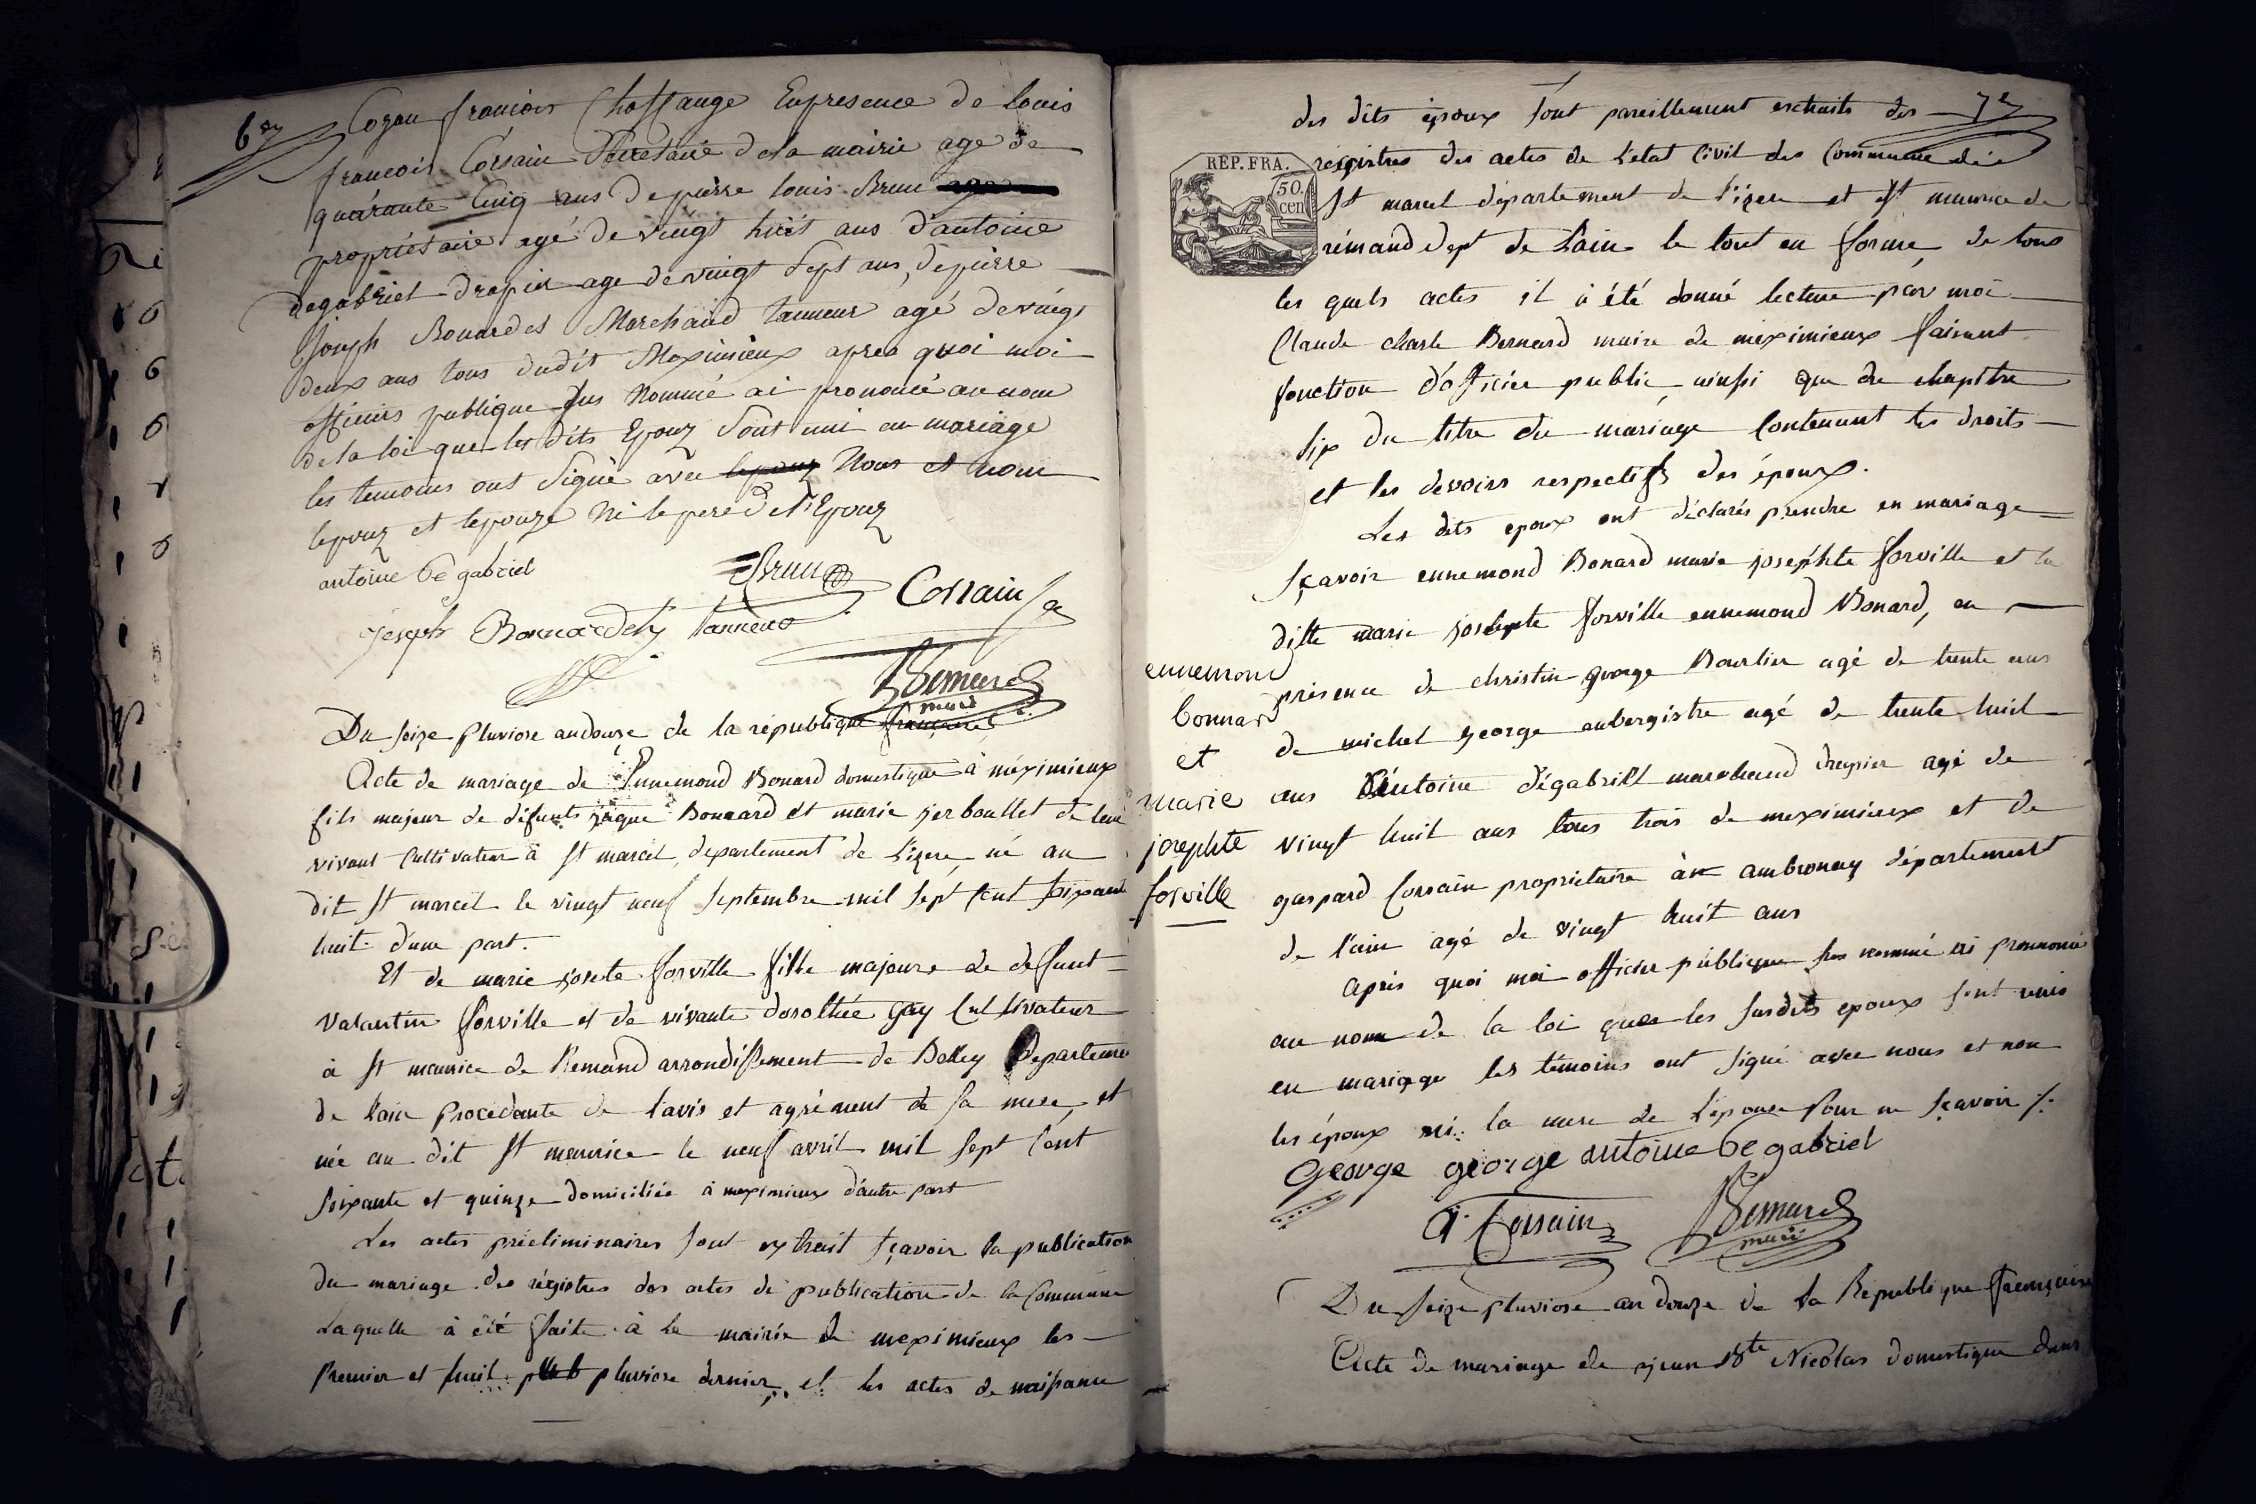 6e
Cozon francois Chossange Enpresence de louis
francois Corsain Secretaire dela mairie age de
quarante Cinq ans De pierre louis Brun
proprietaire agé de vingt huit ans d'antoine
degabriel drapier age de vingt Sept ans, de pierre
Joseph Bonardel Marchand tanneur agé de vingt
deux ans tous dudit Meximieux apres quoi moi
officiers publique sus Nommé ai prononcé au nom
de la loi que les dits Epouz Sont uni en mariage
les temoins ont Signé avec lepouz Nous et non
lepouz et lepouze Ni le pere de l'Epouz
antoine De gabriel
Brun
Corsain
joseph Bonnardel tanneur
Bernard
maire
Du seize pluviose an douze de la république française
Acte de mariage de Ennemond Bonard domestique à méximieux
fils majeur de défunts Bonnard et marie gerboullet de leur
vivant Cultivateur à st marcel, departement de l'izere, né au
dit st marcel le vingt neuf septembre mil sept cent soixante
huit d'une part.
Et de marie josete forville fille majeure de defunt
valantin forville et de vivante dorothée gay Cultivateur
à st maurice de Remand arrondissement de Belley Departement
de lain Procedante de l'avis et agrément de sa mere, et
née au dit st maurice le neuf avril mil sept cent
soixante et quinze domiciliée à meximieux d'autre part
Les actes préeliminaires sont extrait sçavoir la publication
du mariage des régistres des actes de publication de la Commune
Laquelle à été faite à la mairie de meximieux les
Premier et huit pluviose dernier, et les actes de naissance
7e
des dits époux sont pareillement extraits des
REP. FRA.
50.
cen
régistres des actes de l'etat Civil des Commune de
St marcel département de l'izere et st maurice de
rémand dept de Lain le tout en forme, de tous
les quels actes il à été donné lecture par moi
Claude charle Bernard maire de meximieux faisant
fonction d'officier public, ainsi que du chapitre
six du titre du mariage Contenant les droits
et les devoirs respectifs des époux.
Les dits epoux ont déclarés prendre en mariage
sçavoir ennemond Bonard marie josephte forville et la
ditte marie josephte forville ennemond Bonard, en
ennemond
bonnard
et
marie
josephte
forville
présence de christin george Bourlier agé de trente ans
de michel george aubergiste agé de trente huit
ans d'antoine dégabriel marchand drapier agé de
vingt huit ans tous trois de meximieux et de
gaspard Corsain proprietaire à ambronay département
de l'ain agé de vingt huit ans
Après quoi moi officier publique sus nommé ai prononcé
au nom de la loi que les susdits epoux sont unis
en mariage les témoins ont signé avec nous et non
les époux ni la mere de l'epouse Pour ne sçavoir
George george antoine De gabriel
G. Corsain
Bernard
maire
Du seize pluviose an douze de la Republique francaise
Acte de mariage de jean Bte Nicolas domestique dans